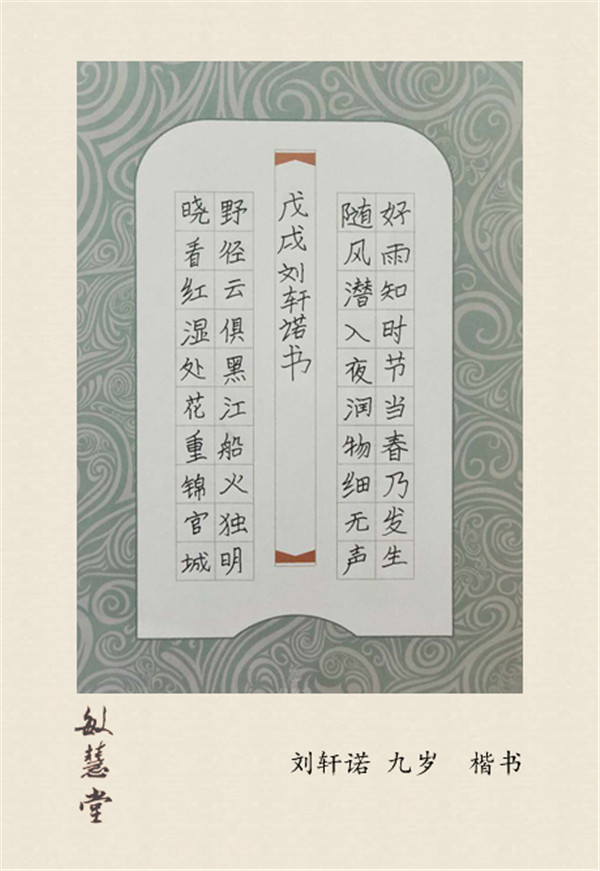 好雨知时节当春乃发生
随风潜入夜润物细无声
戊戌刘轩诺书
野径云俱黑江船火独明
晓看红湿处花重锦官城
敏慧堂
刘轩诺 九岁 楷书